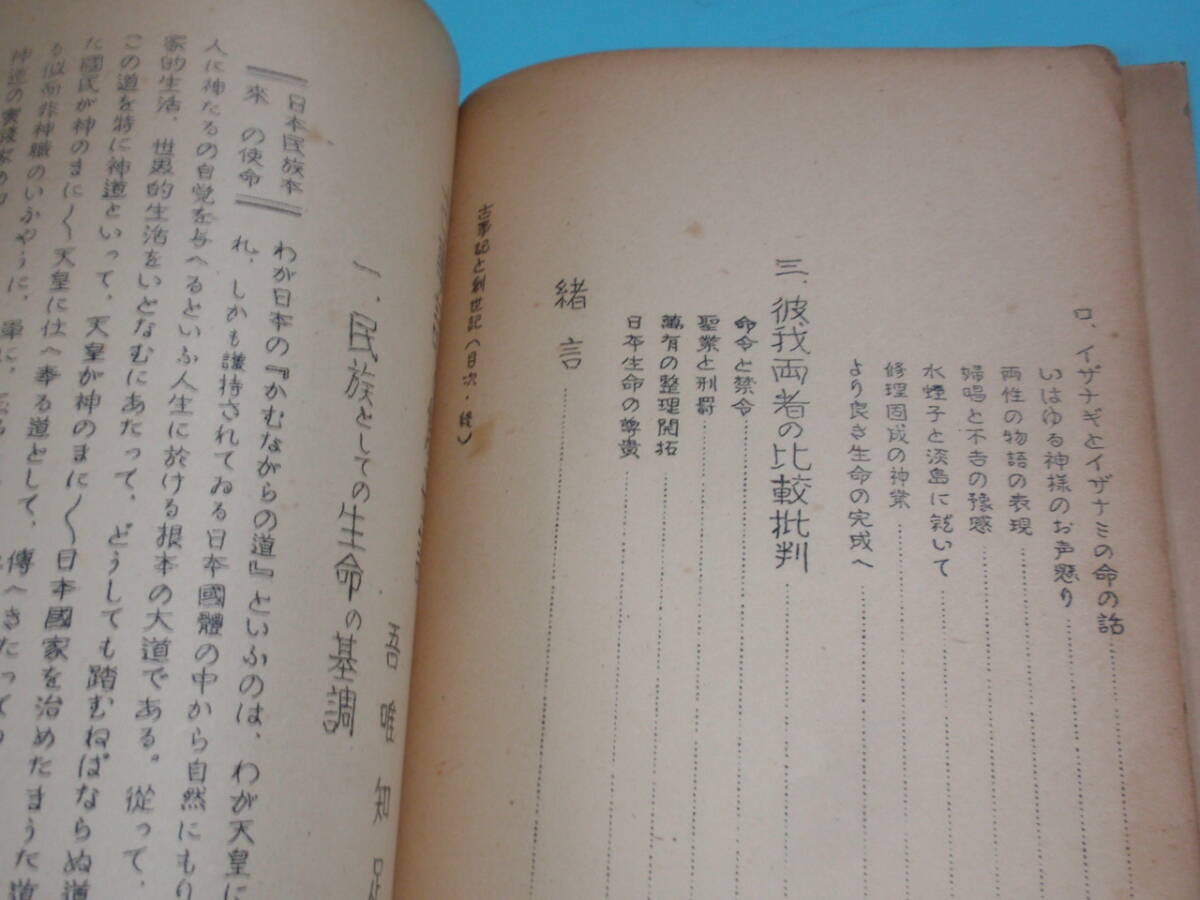 ロ、イザナギとイザナミの命の話
いはゆる神様のお声懸り
両性の物語の表現
婦唱と不吉の豫感
水蛭子と淡島に就いて
修理固成の神業
より良き生命の完成へ
三、彼、我両者の比較批判
命令と禁令
聖業と刑罰
萬有の整理開拓
日本生命の尊貴
緒言
古事記と創世記(目次・終)
吾唯知足
一、民族としての生命の基調
日本民族本
來の使命
わが日本の『かむながらの道』といふのは、わが天皇に
れ、しかも護持されてゐる日本國體の中から自然にもり
人に神たるの自覚を与へるといふ人生に於ける根本の大道である。従って、
家的生活、世界的生活をいとなむにあたって、どうしても踏むねばならぬ道
この道を特に神道といって、天皇が神のまに〱日本國家を治めたまうた道
た國民が神のまに〱天皇に仕へ奉る道として、傳へきたって
る似而非神職のいふやうに、單に、
神道の實践